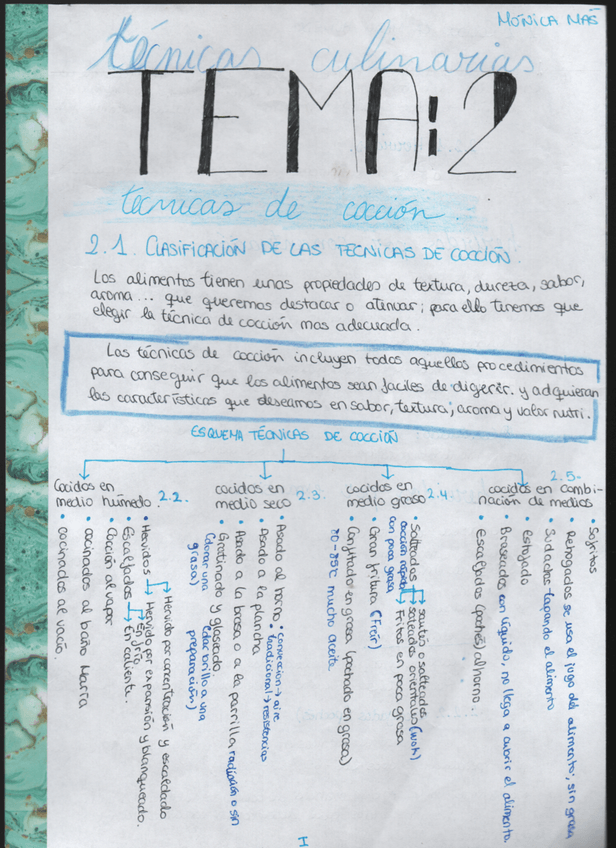 MÓNICA MAS
técnicas culinarias
TEMA:2
tecnicas de cocción.
2.1. CLASIFICACIÓN DE LAS TECNICAS DE COCCIÓN.
Los alimentos tienen unas propiedades de textura, dureza, sabor,
aroma... que queremos destacar o atenuar; para ello tenemos que
elegir la técnica de cocción mas adecuada.
Las técnicas de cocción incluyen todos aquellos procedimientos
para conseguir que los alimentos sean faciles de digerir. y adquieran
las características que deseamos en sabor, textura, aroma y valor nutri.
ESQUEMA TÉCNICAS DE COCCIÓN
Cocidos en
medio húmedo. 2.2.
• Hervidos
Hervido por concentración y escaldado
Hervido por expansión y blanqueado.
• Escalfados
En frio.
En caliente.
• Cocción al vapor
• cocinados al baño Maria
• cocinados al vacío.
cocidos en
medio seco 2.3.
• Asado al horno
• conveccion → aire
• tradicional → resistencias
• Asado a la plancha
• Asado a la brasa o a la parrilla, radiación o sin
• Gratinado y glaseado.
(dorar una grasa)
(dar brillo a una preparación)
cocidos en
medio graso 2.4.
• Salteados
cocción rápida
con poca grasa
sautés o salteados
salteados orientales (wok)
Fritos en poca grasa
• Gran fritura (Freír)
• Confitado en grasa (pochado en grasa)
70-95ºC mucho aceite.
2.5-
cocidos en combi-
nación de medios
• Sofritos
• Rehogados se usa el jugo del alimento, sin grasa
• Sudados-tapando el alimento
• Estofado
• Braseados con líquido, no llega a cubrir el alimento.
• Escalfados (pochés) al horno.
1